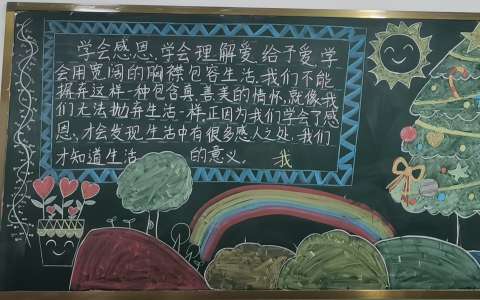 学会感恩,学会理解爱,给予爱,学
会用宽阔的胸襟包容生活,我们不能
摒弃这样一种包含真、善、美的情怀,就像我
们无法抛弃生活一样,正因为我们学会了感
恩、才会发现,生活中有很多感人之处,我们
才知道生活 的意义。 我